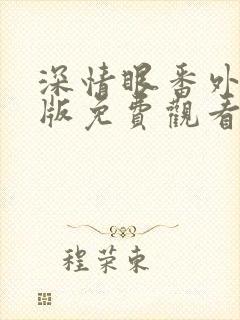 深情眼番外
版免費觀看
程荣東